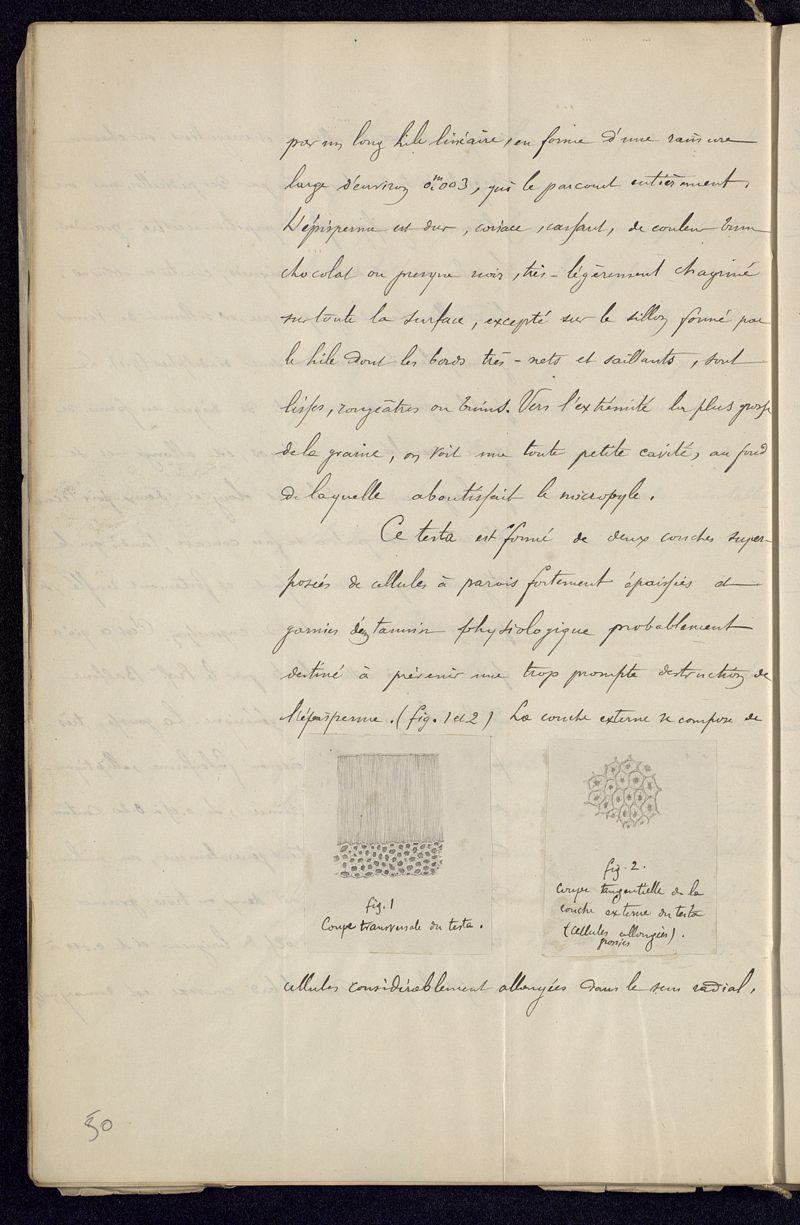 par un long hile linéaire, en forme d'une rainure
large d'environ 0m003, qui le parcourt entièrement.
L'épisperme est dur, coriace, cassant, de couleur brun
chocolat ou presque noir, très-légèrement chagriné
sur toute la surface, excepté sur le sillon formé par
le hile dont les bords très-nets et saillants, sont
lisses, rougeâtres ou bruns. Vers l'extrémité la plus grosse
de la graine, on voit une toute petite cavité, au fond
de laquelle aboutissait le micropyle.
Ce testa est formé de deux couches super-
posées de cellules à parois fortement épaissies et
garnies de tannin physiologique probablement
destiné à prévenir une trop prompte destruction de
l'épisperme. (fig. 1 et 2) La couche externe se compose de
fig. 1
Coupe transversale du testa.
fig. 2.
Coupe tangentielle de la
couche externe du testa
(cellules allongées).
grossies
cellules considérablement allongées dans le sens radial,
50